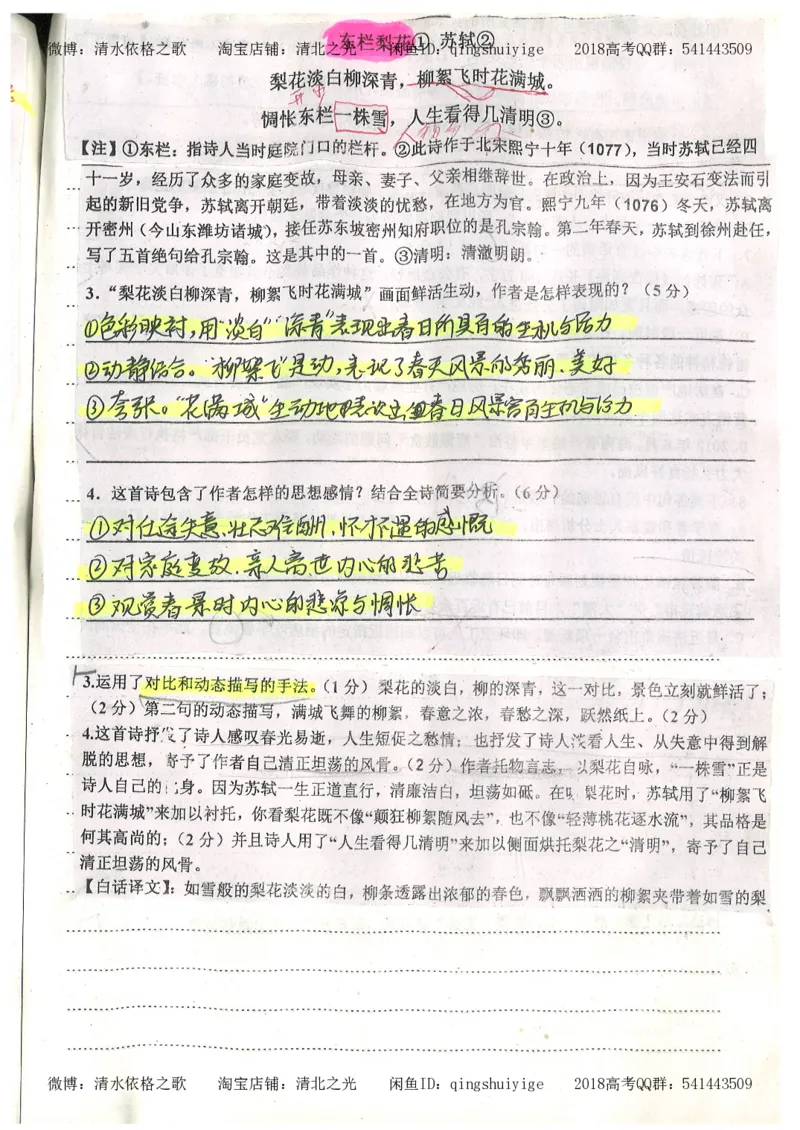 东栏梨花①  苏轼②
微博：清水依格之歌 淘宝店铺：清北之光 闲鱼ID：qingshuiyige 2018高考QQ群：541443509
梨花淡白柳深青，柳絮飞时花满城。
惆怅东栏一株雪，人生看得几清明③。
【注】①东栏：指诗人当时庭院门口的栏杆。②此诗作于北宋熙宁十年（1077），当时苏轼已经四
十一岁，经历了众多的家庭变故，母亲、妻子、父亲相继辞世。在政治上，因为王安石变法而引
起的新旧党争，苏轼离开朝廷，带着淡淡的忧愁，在地方为官。熙宁九年（1076）冬天，苏轼离
开密州（今山东潍坊诸城），接任苏东坡密州知府职位的是孔宗翰。第二年春天，苏轼到徐州赴任，
写了五首绝句给孔宗翰。这是其中的一首。③清明：清澈明朗。
3．“梨花淡白柳深青，柳絮飞时花满城”画面鲜活生动，作者是怎样表现的？（5分）
①色彩映衬，用“淡白”“深青”表现出春日所具有的生机与活力
②动静结合。“柳絮飞”是动，表现了春天风景的秀丽、美好
③夸张。“花满城”生动地表达出春日风景富有生机与活力
4．这首诗包含了作者怎样的思想感情？结合全诗简要分析。（6分）
①对仕途失意、壮志难酬、怀才不遇的感慨
②对家庭变故、亲人离世内心的悲苦
③观赏春景时内心的悲凉与惆怅
3.运用了对比和动态描写的手法。（1分）梨花的淡白，柳的深青，这一对比，景色立刻就鲜活了；
（2分）第二句的动态描写，满城飞舞的柳絮，春意之浓，春愁之深，跃然纸上。（2分）
4.这首诗抒发了诗人感叹春光易逝，人生短促之愁情；也抒发了诗人淡看人生、从失意中得到解
脱的思想，寄予了作者自己清正坦荡的风骨。（2分）作者托物言志，以梨花自咏，“一株雪”正是
诗人自己的化身。因为苏轼一生正道直行，清廉洁白，坦荡如砥。在咏梨花时，苏轼用了“柳絮飞
时花满城”来加以衬托，你看梨花既不像“颠狂柳絮随风去”，也不像“轻薄桃花逐水流”，其品格是
何其高尚的；（2分）并且诗人用了“人生看得几清明”来加以侧面烘托梨花之“清明”，寄予了自己
清正坦荡的风骨。
【白话译文】：如雪般的梨花淡淡的白，柳条透露出浓郁的春色，飘飘洒洒的柳絮夹带着如雪的梨
微博：清水依格之歌 淘宝店铺：清北之光 闲鱼ID：qingshuiyige 2018高考QQ群：541443509